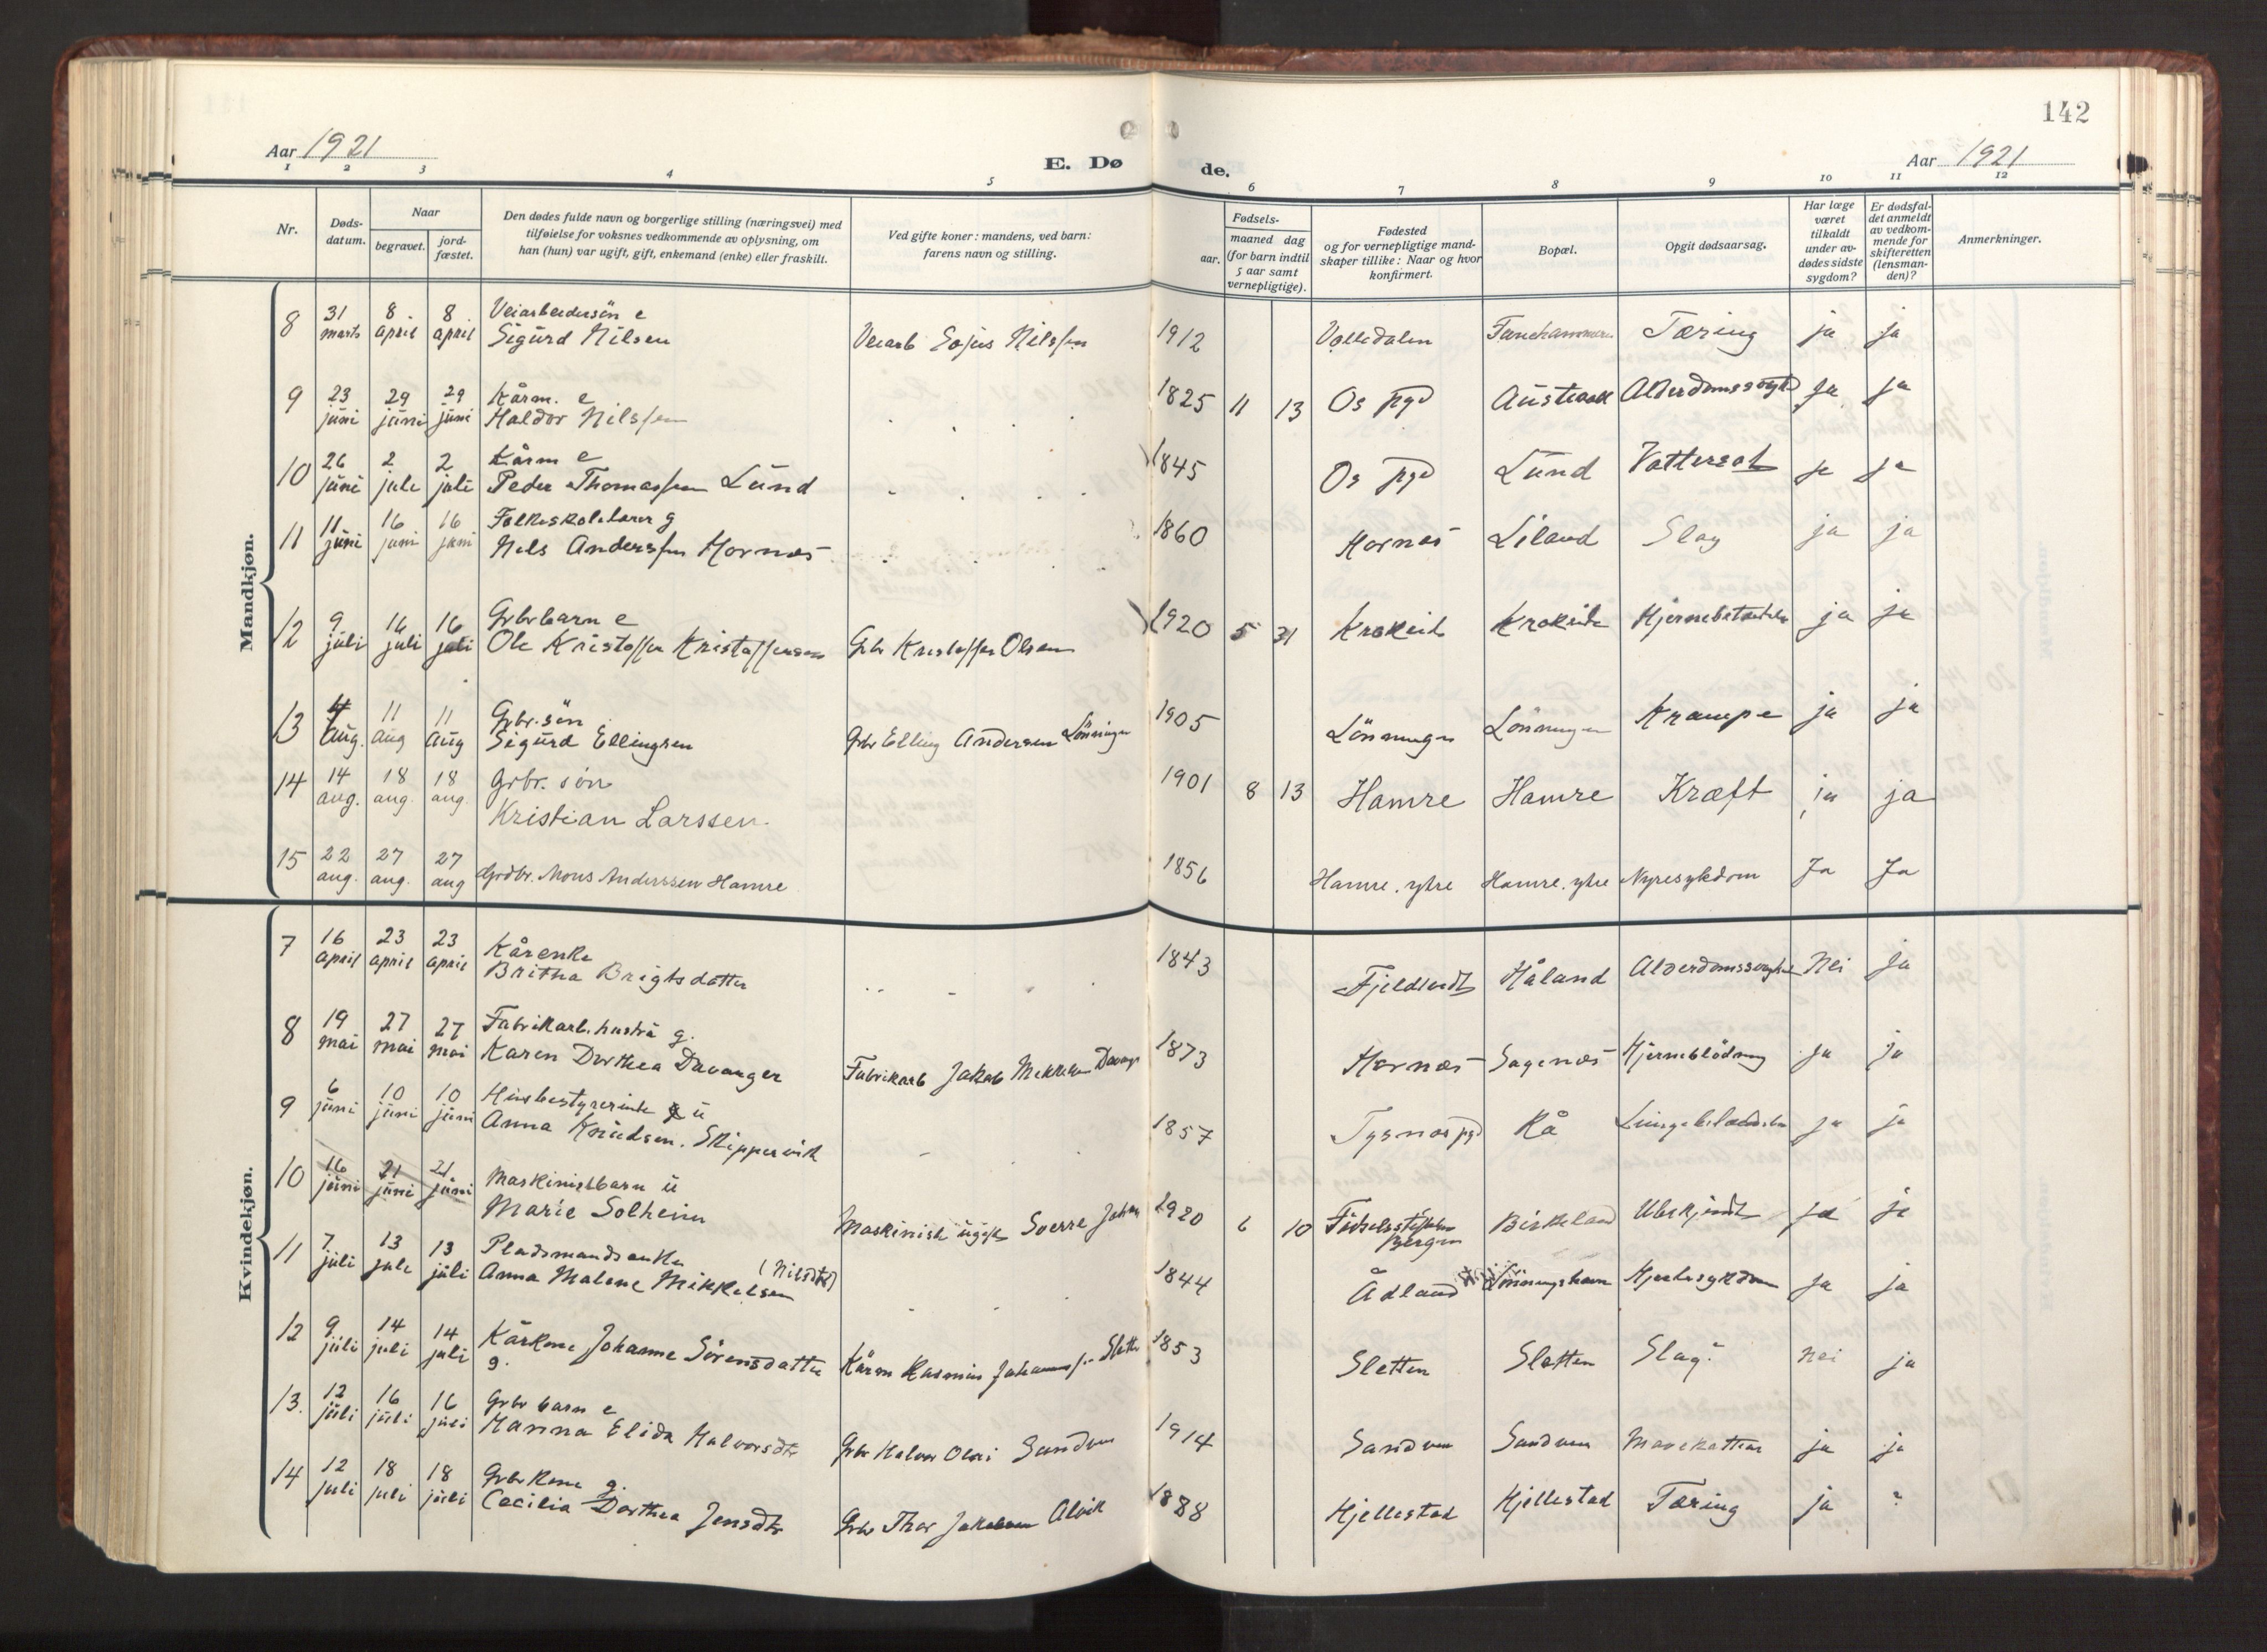 142
Aar 1921
E. Dø
de.
Aar 1921
1 2 3 4 5 6 7 8 9 10 11 12
Nr.
Døds-
datum.
Naar
begravet.
jord-
fæstet.
Den dødes fulde navn og borgerlige stilling (næringsvei) med
tilføielse for voksnes vedkommende av oplysning, om
han (hun) var ugift, gift, enkemand (enke) eller fraskilt.
Ved gifte koner: mandens, ved barn:
farens navn og stilling.
Fødsels-
aar.
maaned dag
(for barn indtil
5 aar samt
vernepligtige).
Fødested
og for vernepligtige mand-
skaper tillike: Naar og hvor
konfirmert.
Bopæl.
Opgit dødsaarsag.
Har læge
været
tilkaldt
under av-
dødes sidste
sygdom?
Er dødsfal-
det anmeldt
av vedkom-
mende for
skifteretten
(lensman-
den)?
Anmerkninger.
Mandkjøn.
8 31 marts 8 april 8 april Veiarbeidersön e
Sigurd Nilsen Veiarb Nilssen 1912 Tæring ja ja
9 23 juni 29 juni 29 juni Kårm. e
Haldor Nilssen 1825 11 13 Os pgd Alderdomssvagh ja ja
10 26 juni 2 juli 2 juli Kårm e
Peder Thomassen Lund 1845 Os pgd Lund Vattersot ja ja
11 11 juni 16 juni 16 juni Folkeskolelærer g
Nels Anderssen Hornæs 1860 Hornæs Liland Slag ja ja
12 9 juli 16 juli 16 juli Grbr barn e
Ole Kristoffer Kristoffersen Gbr Kristoffer Olsen 1920 5 31 Krokeid Krokeide ja ja
13 4 aug. 11 aug 11 aug Grbr. sön
Sigurd Ellingsen Gbr Elling Andersen Lönningen 1905 Lönningen Lönningen Krampe ja ja
14 14 aug. 18 aug. 18 aug. Grbr. søn
Kristian Larssen. 1901 8 13 Hamre Hamre Kræft ja ja
15 22 aug. 27 aug. 27 aug Grdbr. Mons Anderssen Hamre 1856 Hamre. ytre Hamre. ytre Nyresykdom Ja Ja
Kvindekjøn.
7 16 april 23 april 23 april Kårenke
Britha Brigtsdatter 1843 Håland Alderdomssvaghe Nei ja
8 19 mai 27 mai 27 mai Fabrikarb. hustru g.
Karen Dorthea Davanger Fabrikarb Jakob Mikkelsen 1873 Hornæs Hjerneblödning ja ja
9 6 juni 10 juni 10 juni Husbestyrerinde u
Anna Knudsen. Skippervik 1857 Tysnæs pgd Rå ja ja
10 16 juni 21 juni 21 juni Maskinistbarn u
Marie Solheim Maskinist ugift Sverre Johan 1920 6 10 Födselsstiftelsen
Bergen Birkeland Ubekjendt ja ja
11 7 juli 13 juli 13 juli Pladsmandsenke
Anna Malene Mikkelsen (Nilsdtr) 1844 Ådland Hjertesykdom ja ja
12 9 juli 14 juli 14 juli Kårkone Johanne Sörensdatter
g. Kårm Rasmus Johannessen Sletten 1853 Sletten Sletten Slag. nei ja
13. 12 juli 16 juli 16 juli Grbr barn e
Hanna Elida Halvorsdtr Gbr Halvor Olai Sandven 1914 Sandven Sandven ja ja
14 12 juli 18 juli 18 juli Grbr Kone g.
Cecilia Dorthea Jensdtr Gbr Thor Jakobsen Alvik 1888 Hjellestad Hjellestad Tæring ja ?